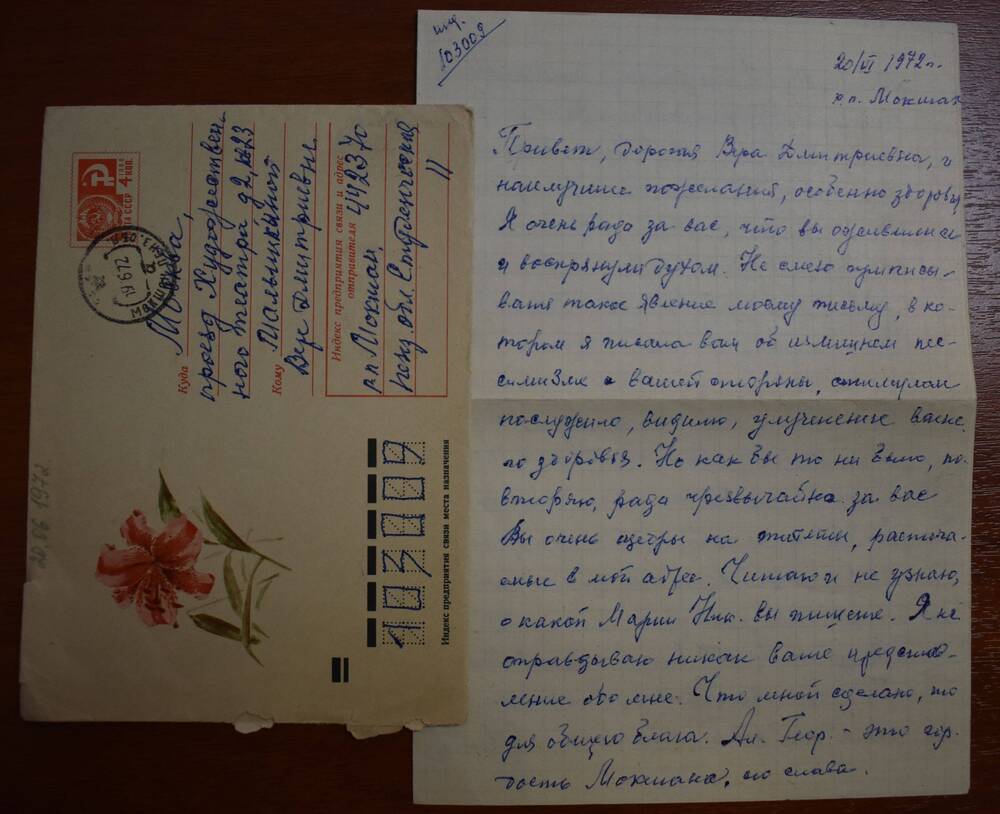 инд.
103009
20/VI 1972 г.
р.п. Мокшан
Привет, дорогая Вера Дмитриевна, и
наилучших пожеланий, особенно здоровья
Я очень рада за вас, что вы оживились
и воспрянули духом. Не смею приписы-
вать такое явление моему письму, в ко-
тором я писала вам об излишнем пес-
симизме с вашей стороны, стимулом
послужило, видимо, улучшение ваше-
го здоровья. Но как бы то ни было, по-
вторяю, рада чрезвычайно за вас
Вы очень щедры на эпитеты, расточа-
емые в мой адрес. Читаю и не узнаю,
о какой Марии Ник. вы пишете. Я не
оправдываю никак ваше представ-
ление обо мне. Что мной сделано, то
для общего блага. Ал. Геор. - это гор-
дость Мокшана, его слава.
4 коп.
ПОЧТА СССР
19 6 72
Куда Москва,
проезд Художествен-
ного театра д 2, кв 23
Кому Малышкиной
Вере Дмитриевне
Индекс предприятия связи и адрес
отправителя 442370
рп. Мокшан,
Пенз. обл. Студенческая
11
103009
Индекс предприятия связи места назначения
20.06 1972